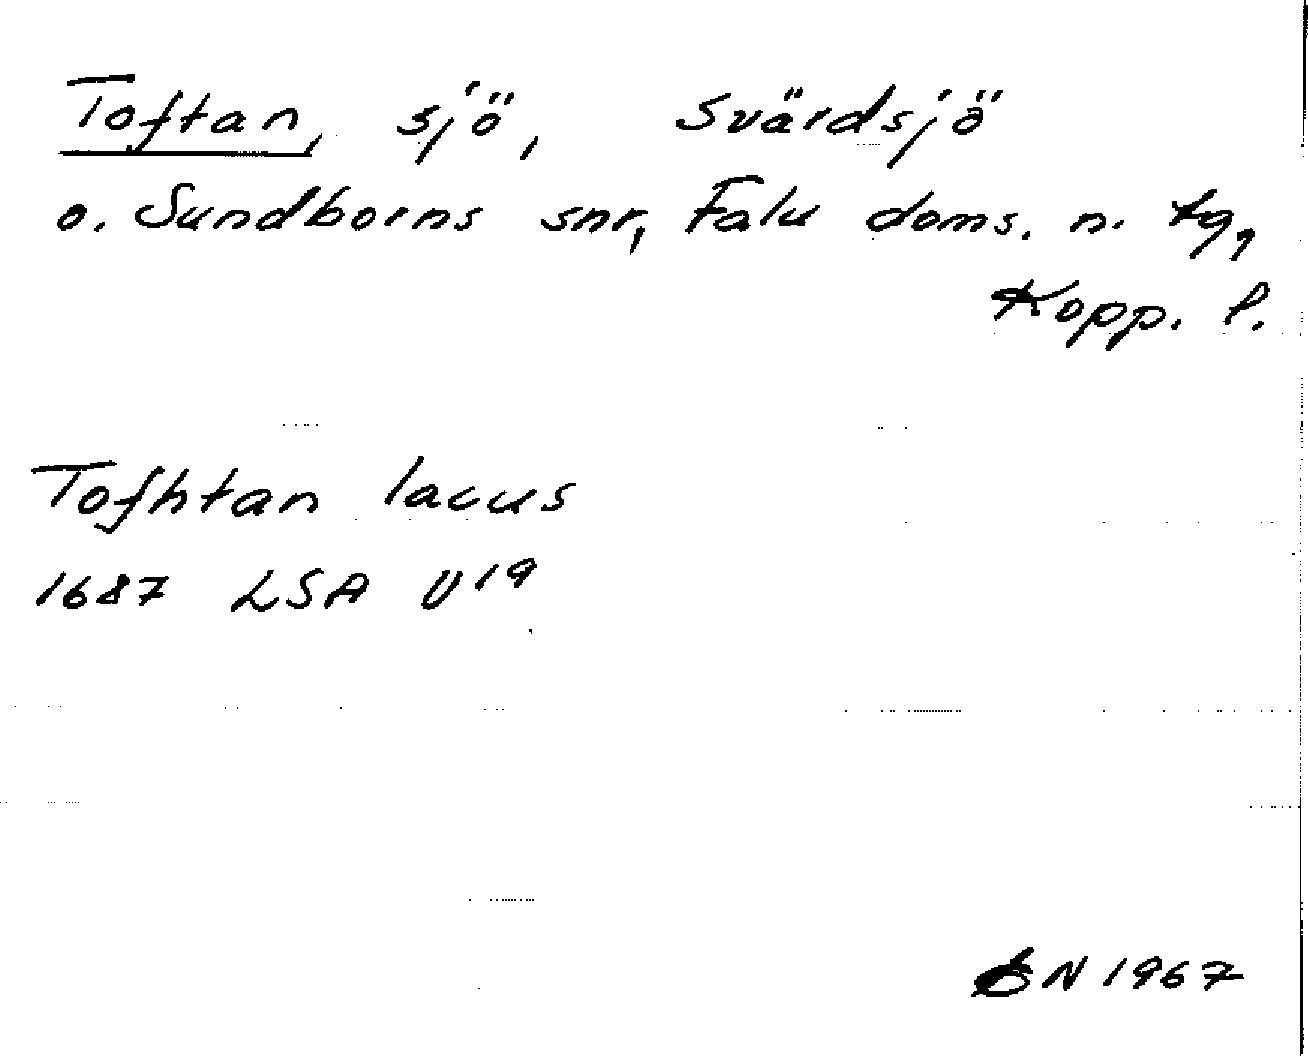 Toftan, sjö, Svärdsjö
o. Sundborns snr, Falu doms. n. tg,
Kopp. l.
Tofhtan lacus
1687 LSA U19
N 1967